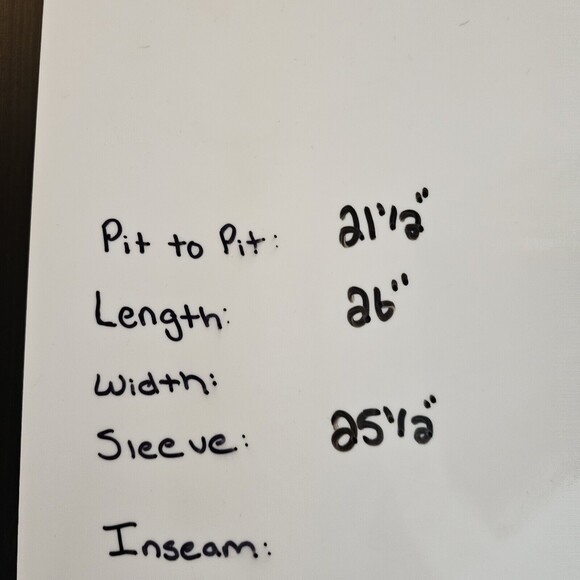 Pit to Pit: 21 1/2"
Length: 26"
Width:
Sleeve: 25 1/2"
Inseam: